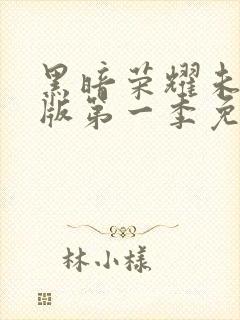 黑暗荣耀未
版第一季免
林小樣